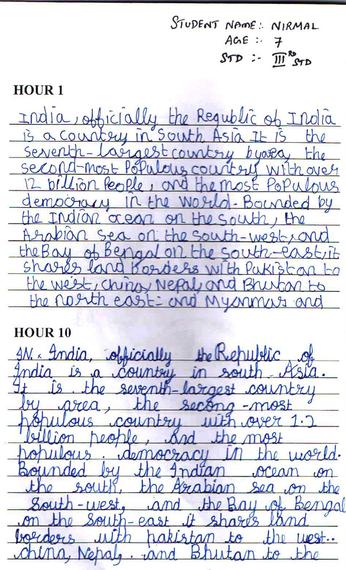 STUDENT NAME:- NIRMAL
AGE :- 7
STD :- III RD STD
HOUR 1
India, officially the Republic of India
is a country in South Asia It is the
seventh-largest country by area, the
second-most PoPulous country with over
12 billion People, and the most PoPulous
democracy in the world. Bounded by
the Indian ocean on the South, the
Arabian Sea on the South-west, and
the Bay of Bengal on the South-east, it
shares land borders with Pakistan to
the west, china, Nepal, and Bhutan to
the north east: and Myanmar and
HOUR 10
IN. India, officially the Republic of
India is a country in south Asia.
It is the seventh-largest country
by area, the second-most
populous country with over 1.2
billion people, and the most
populous. democracy in the world.
Bounded by the Indian ocean on
the south, the Arabian sea on the
South-west, and the Bay of Bengal
on the South-east it shares land
borders with pakistan to the west..
china, Nepal, and Bhutan to the